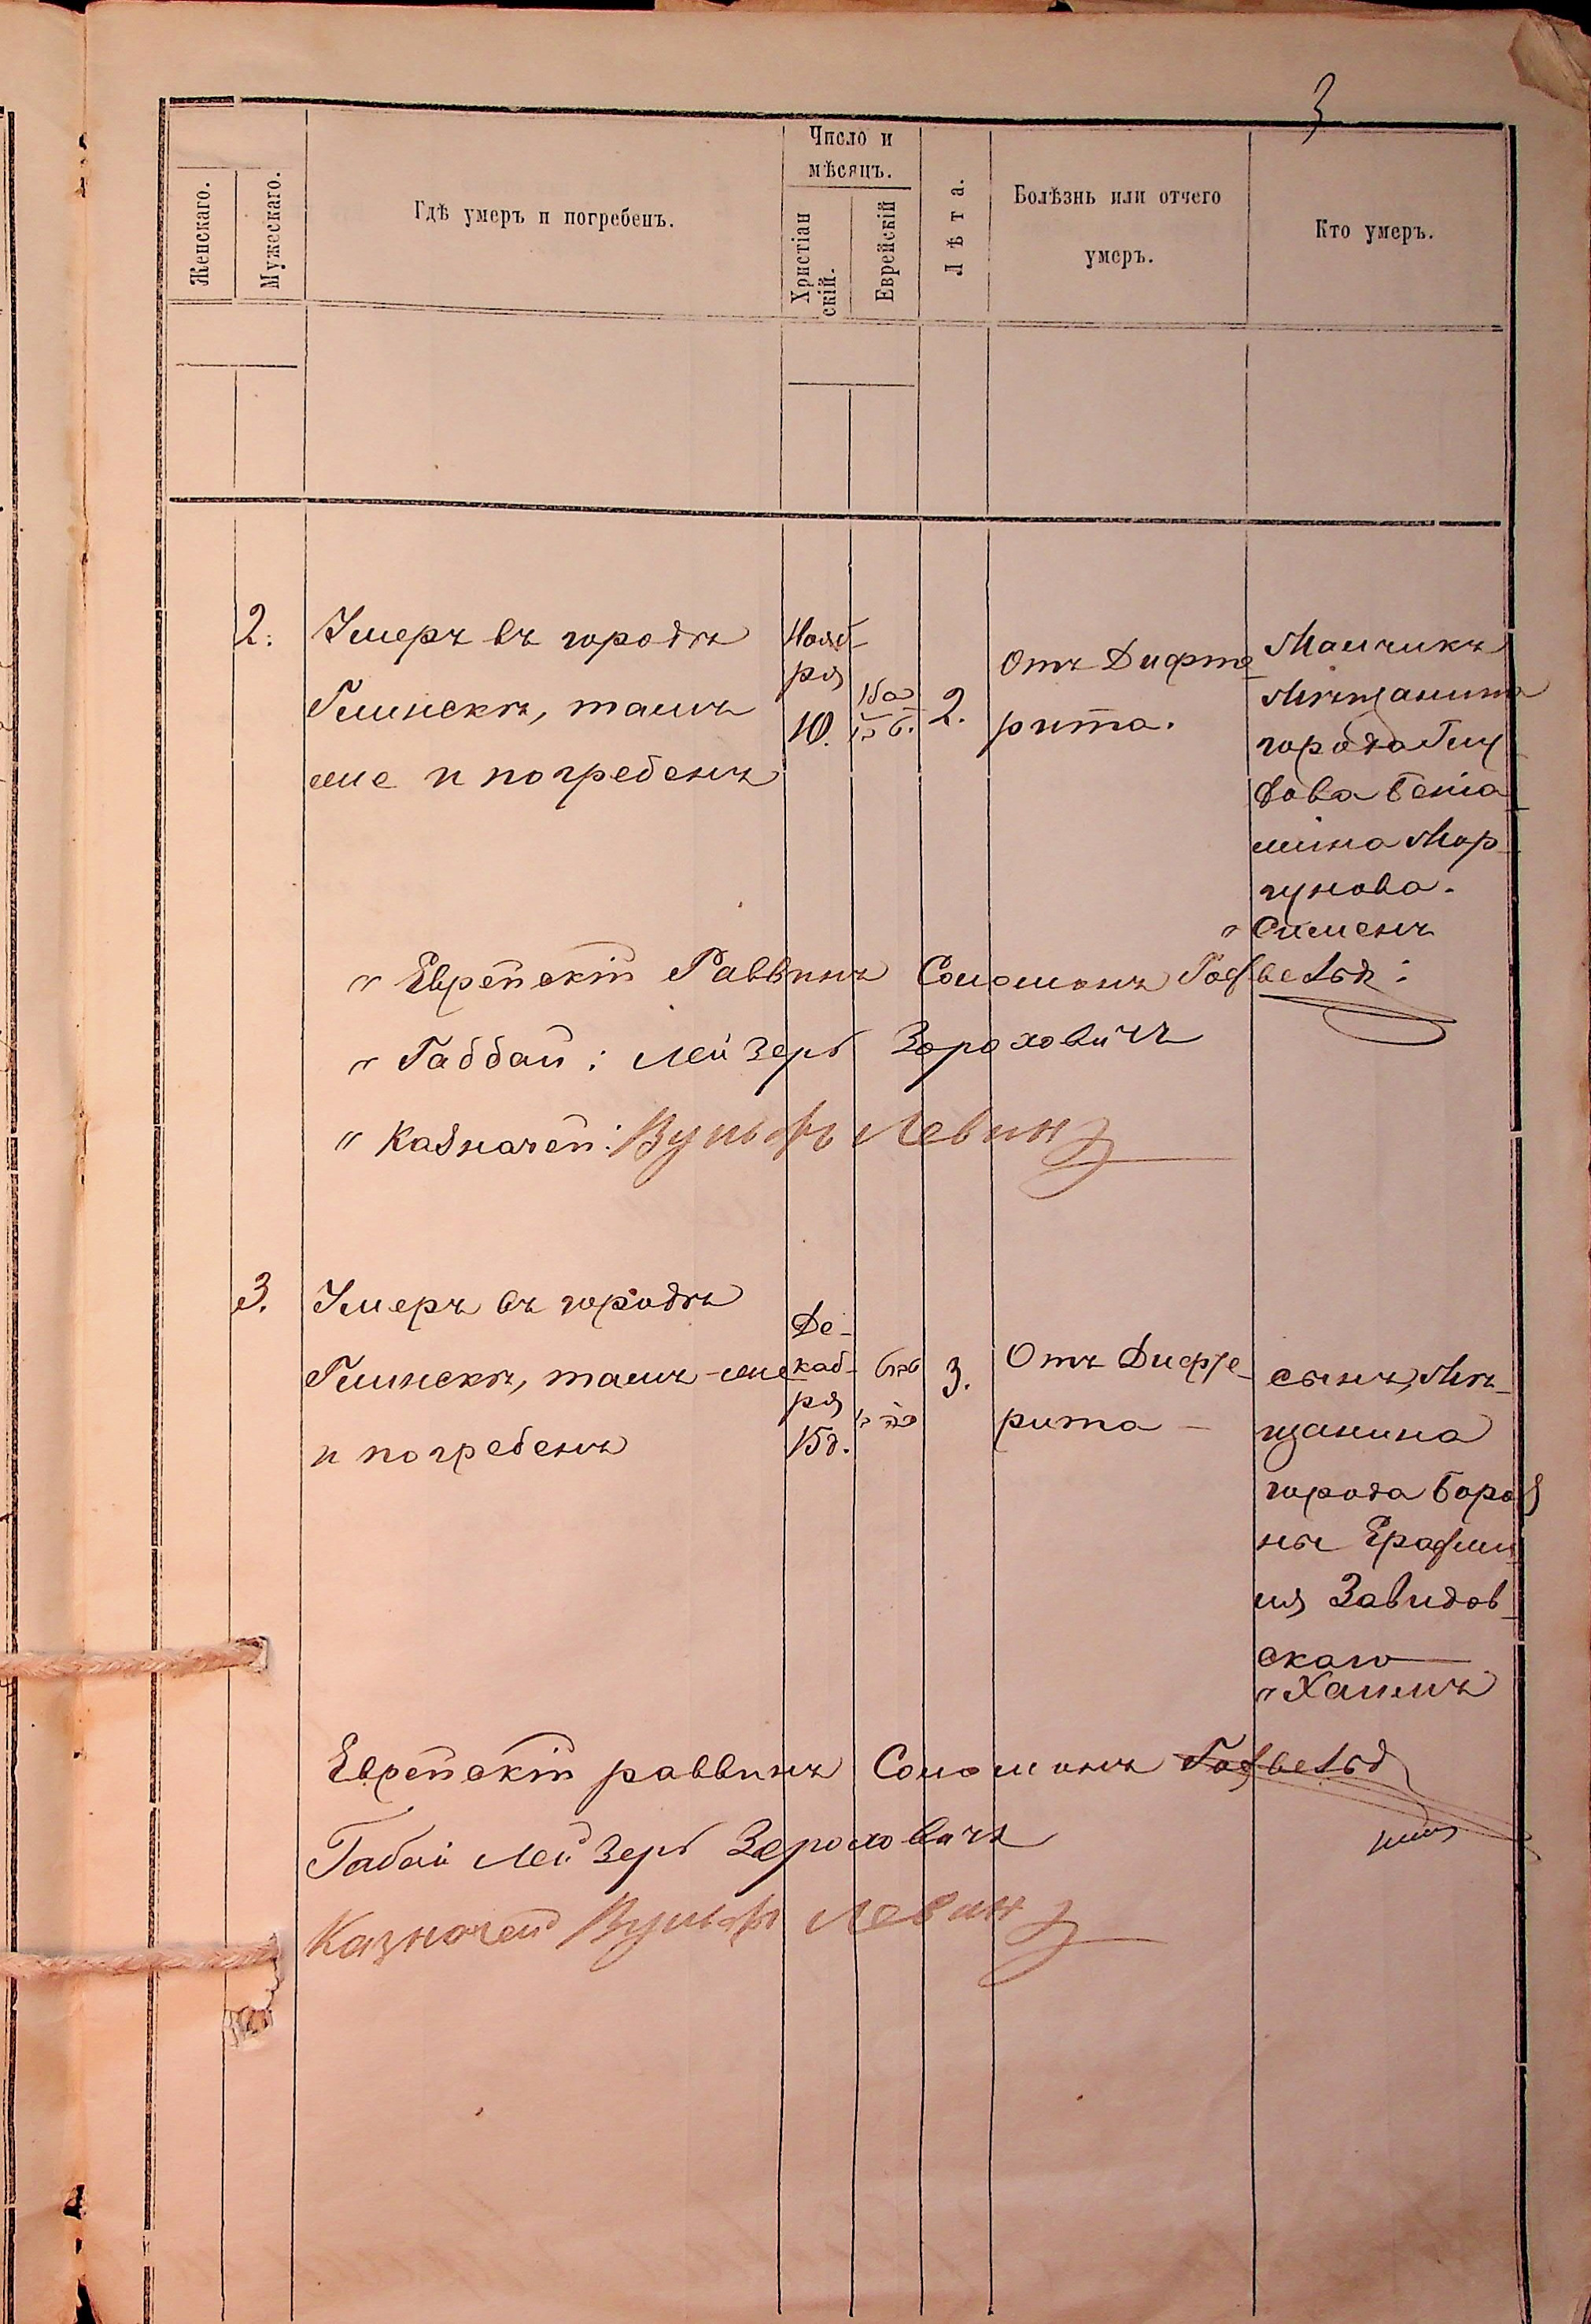 3
Женскаго.
Мужескаго.
Гдѣ умеръ и погребенъ.
Число и
мѣсяцъ.
Христіан
скій.
Еврейскій
Лѣта.
Болѣзнь или отчего
умеръ.
Кто умеръ.
2.
Умеръ въ городѣ
Глинскѣ, тамъ
же и погребенъ
Нояб-
ря
10.
2.
Отъ Дифте
рита.
Мальчикъ
Мѣщанина
города Глу
хова Бенiа
мина Мор
гунова.
" Сименъ
" Еврейскій Раввинъ Соломонъ
" Габбай: Лейзеръ Зороховичъ
" Казначей: Вульфъ Левинъ
3.
Умеръ въ городѣ
Глинскѣ, тамъ-же
и погребенъ
Де-
каб-
ря
15д.
3.
Отъ Дифте-
рита -
сынъ, Мѣ-
щанина
города Борз
ны
Завидов-
скаго
" Хаимъ
Еврейскій раввинъ Соломонъ
Габай Лейзеръ Зороховичъ
Казначей Вульфъ Левинъ